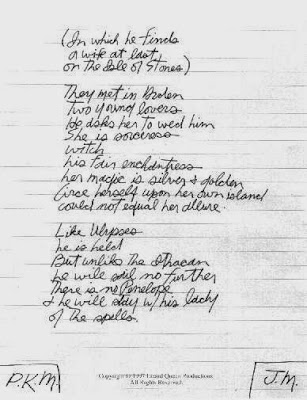 (In which he finds
a wife at last
on the Isle of Stones)
They met in Baden
Two young lovers
He asks her to wed him
She is sorceress
witch
his fair enchantress
her magic is silver & golden
Circe herself upon her own island
could not equal her allure.
Like Ulysses
he is held
But unlike the Ithacan
he will sail no further
There is no Penelope
& he will stay w/ his lady
of the spells.
P.K.M.
Copyright © 1997 Lizard Queen Productions
All Rights Reserved.
J.M.